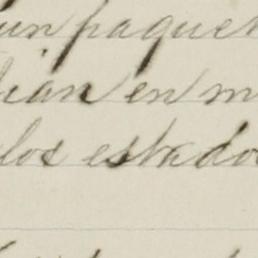 un paque
ian en m
los estado